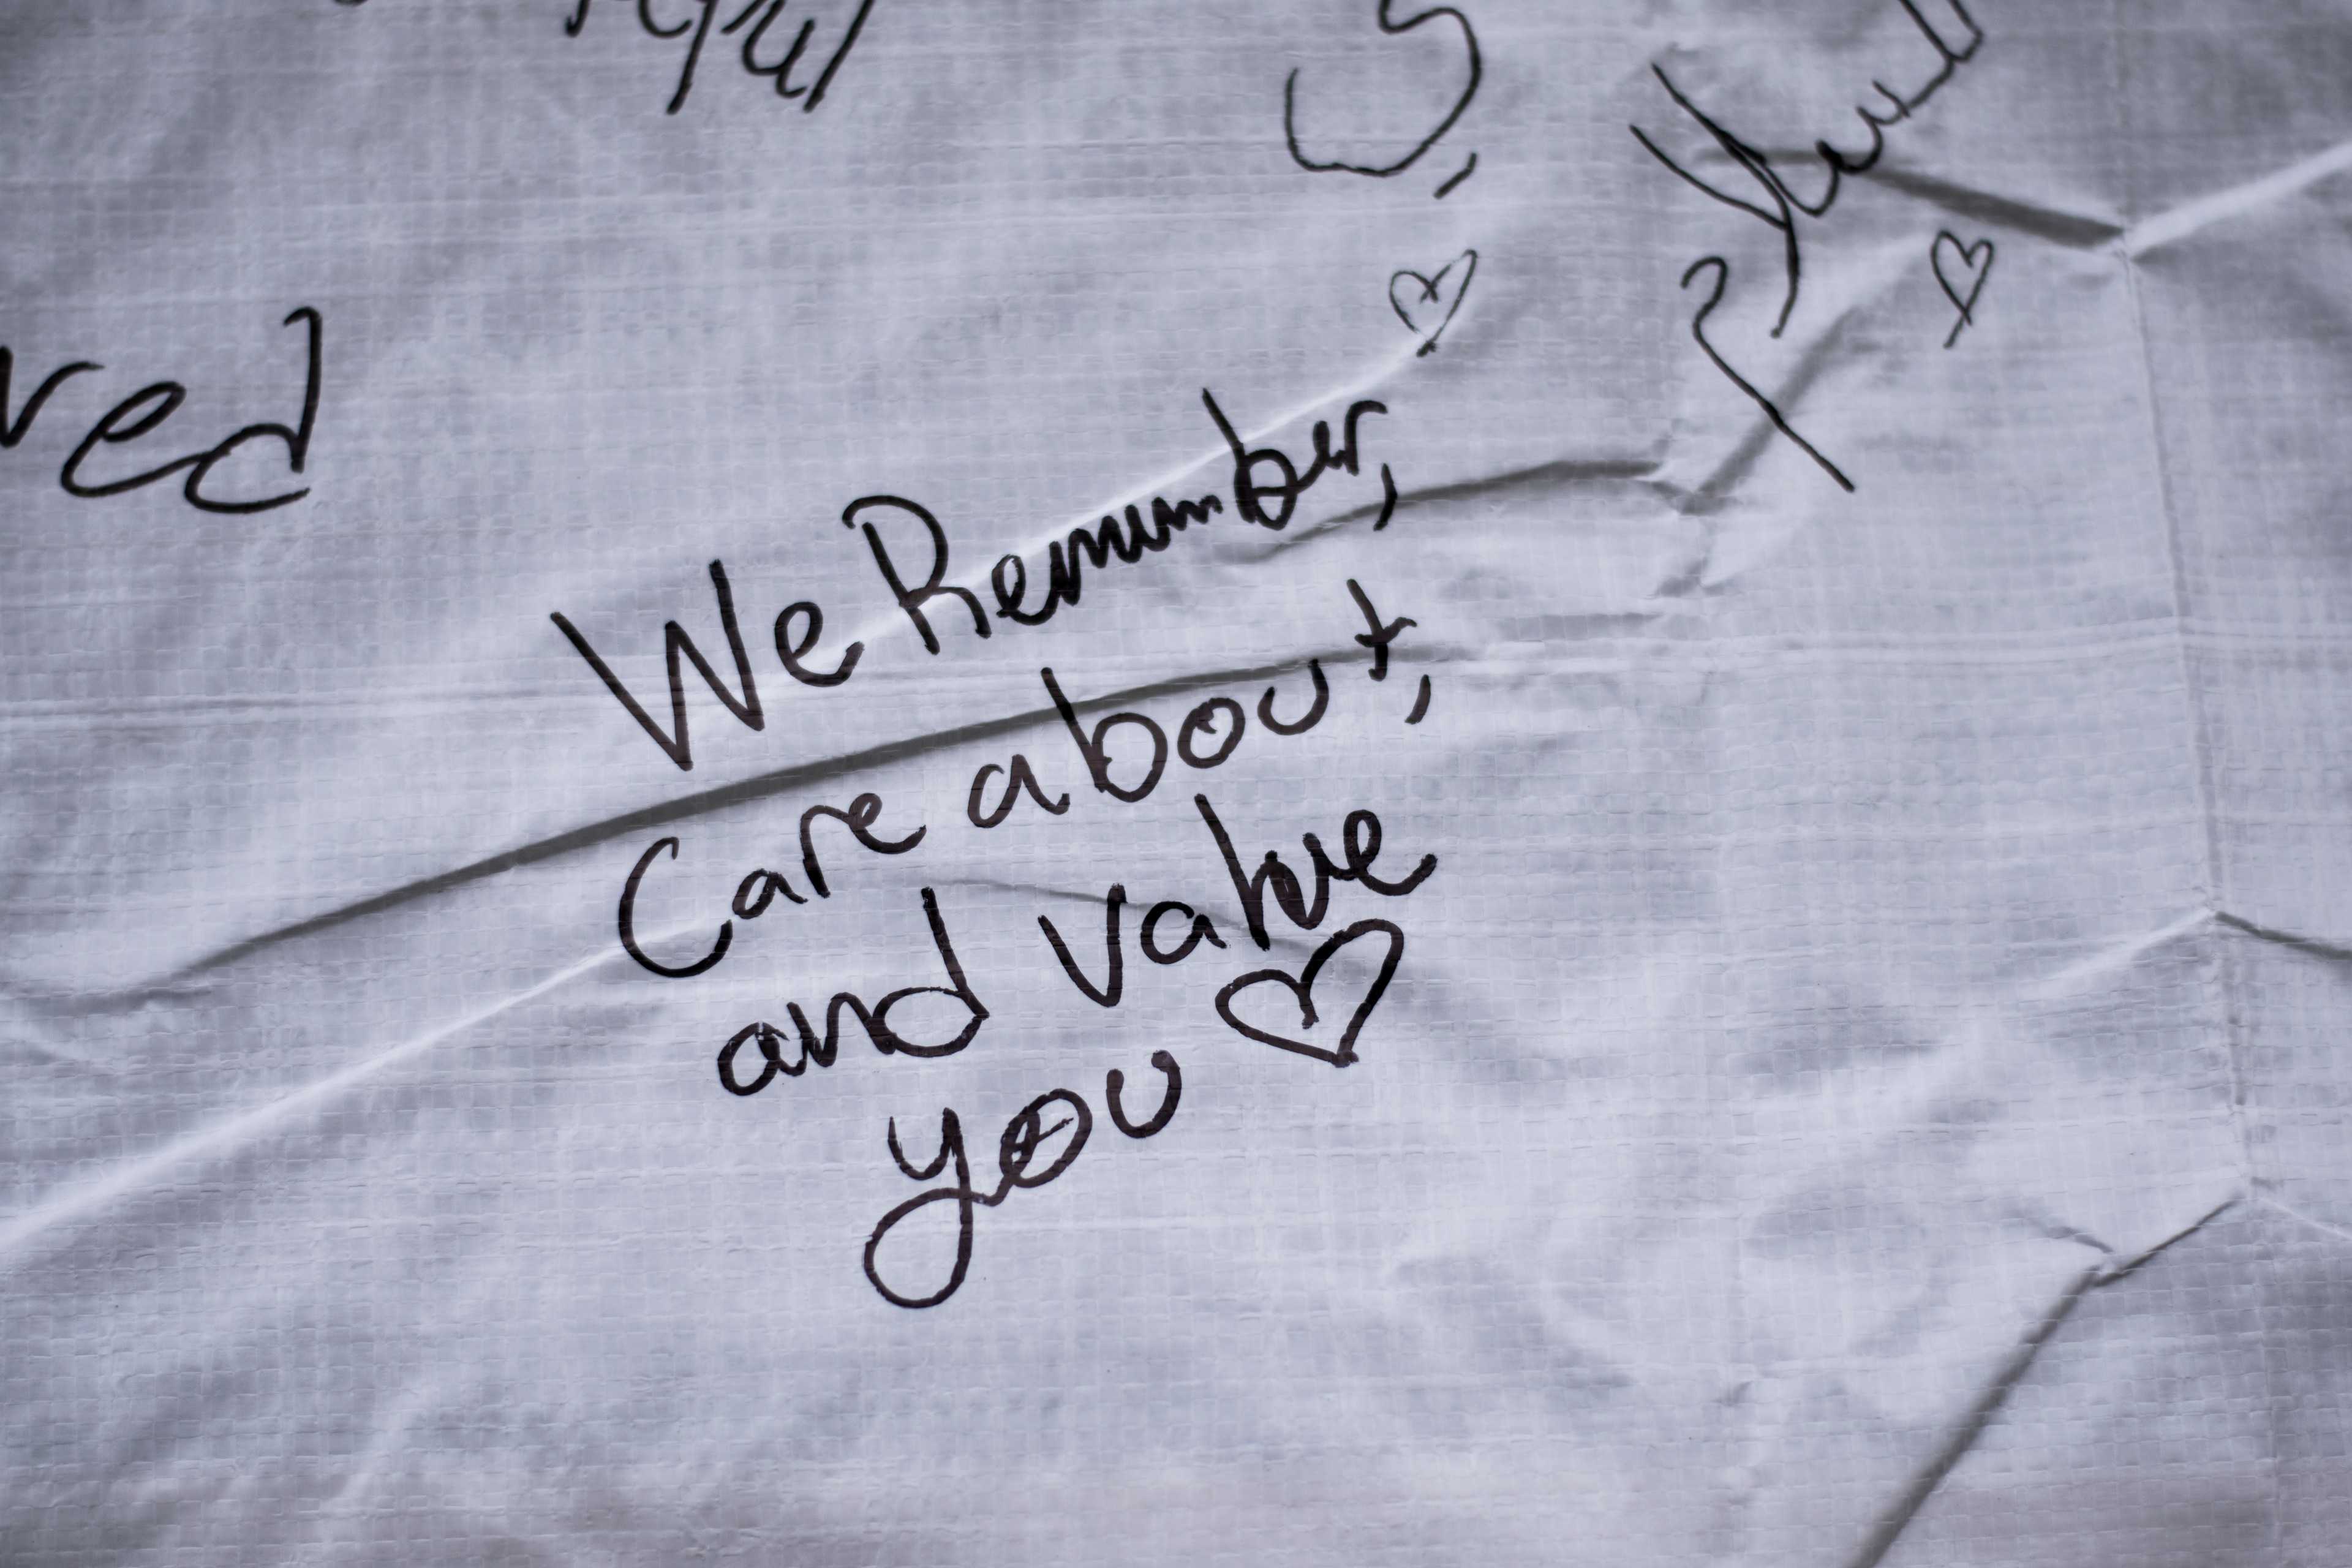 red
We Remember,
Care about,
and value
you ♡